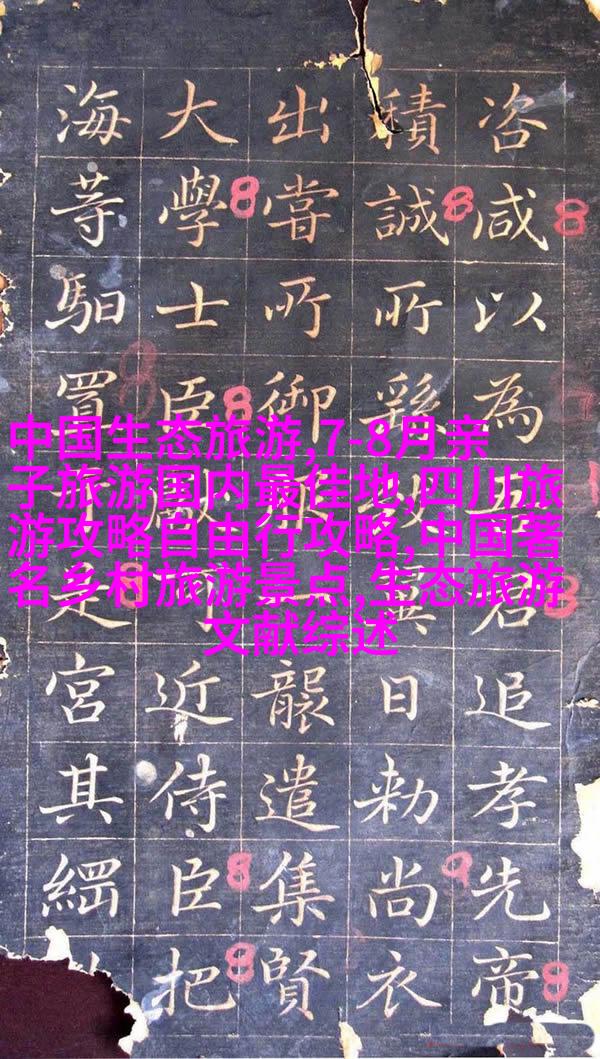 咨咸以為君追孝先帝
積誠所致日勑尚衣
出嘗所御服一襲遣集賢
大學士臣近侍臣把
海等馹置于是宮其
中国生态旅游,7-8月亲
子旅游国内最佳地,四川旅
游攻略自由行攻略,中国著
名乡村旅游景点,生态旅游
文献综述